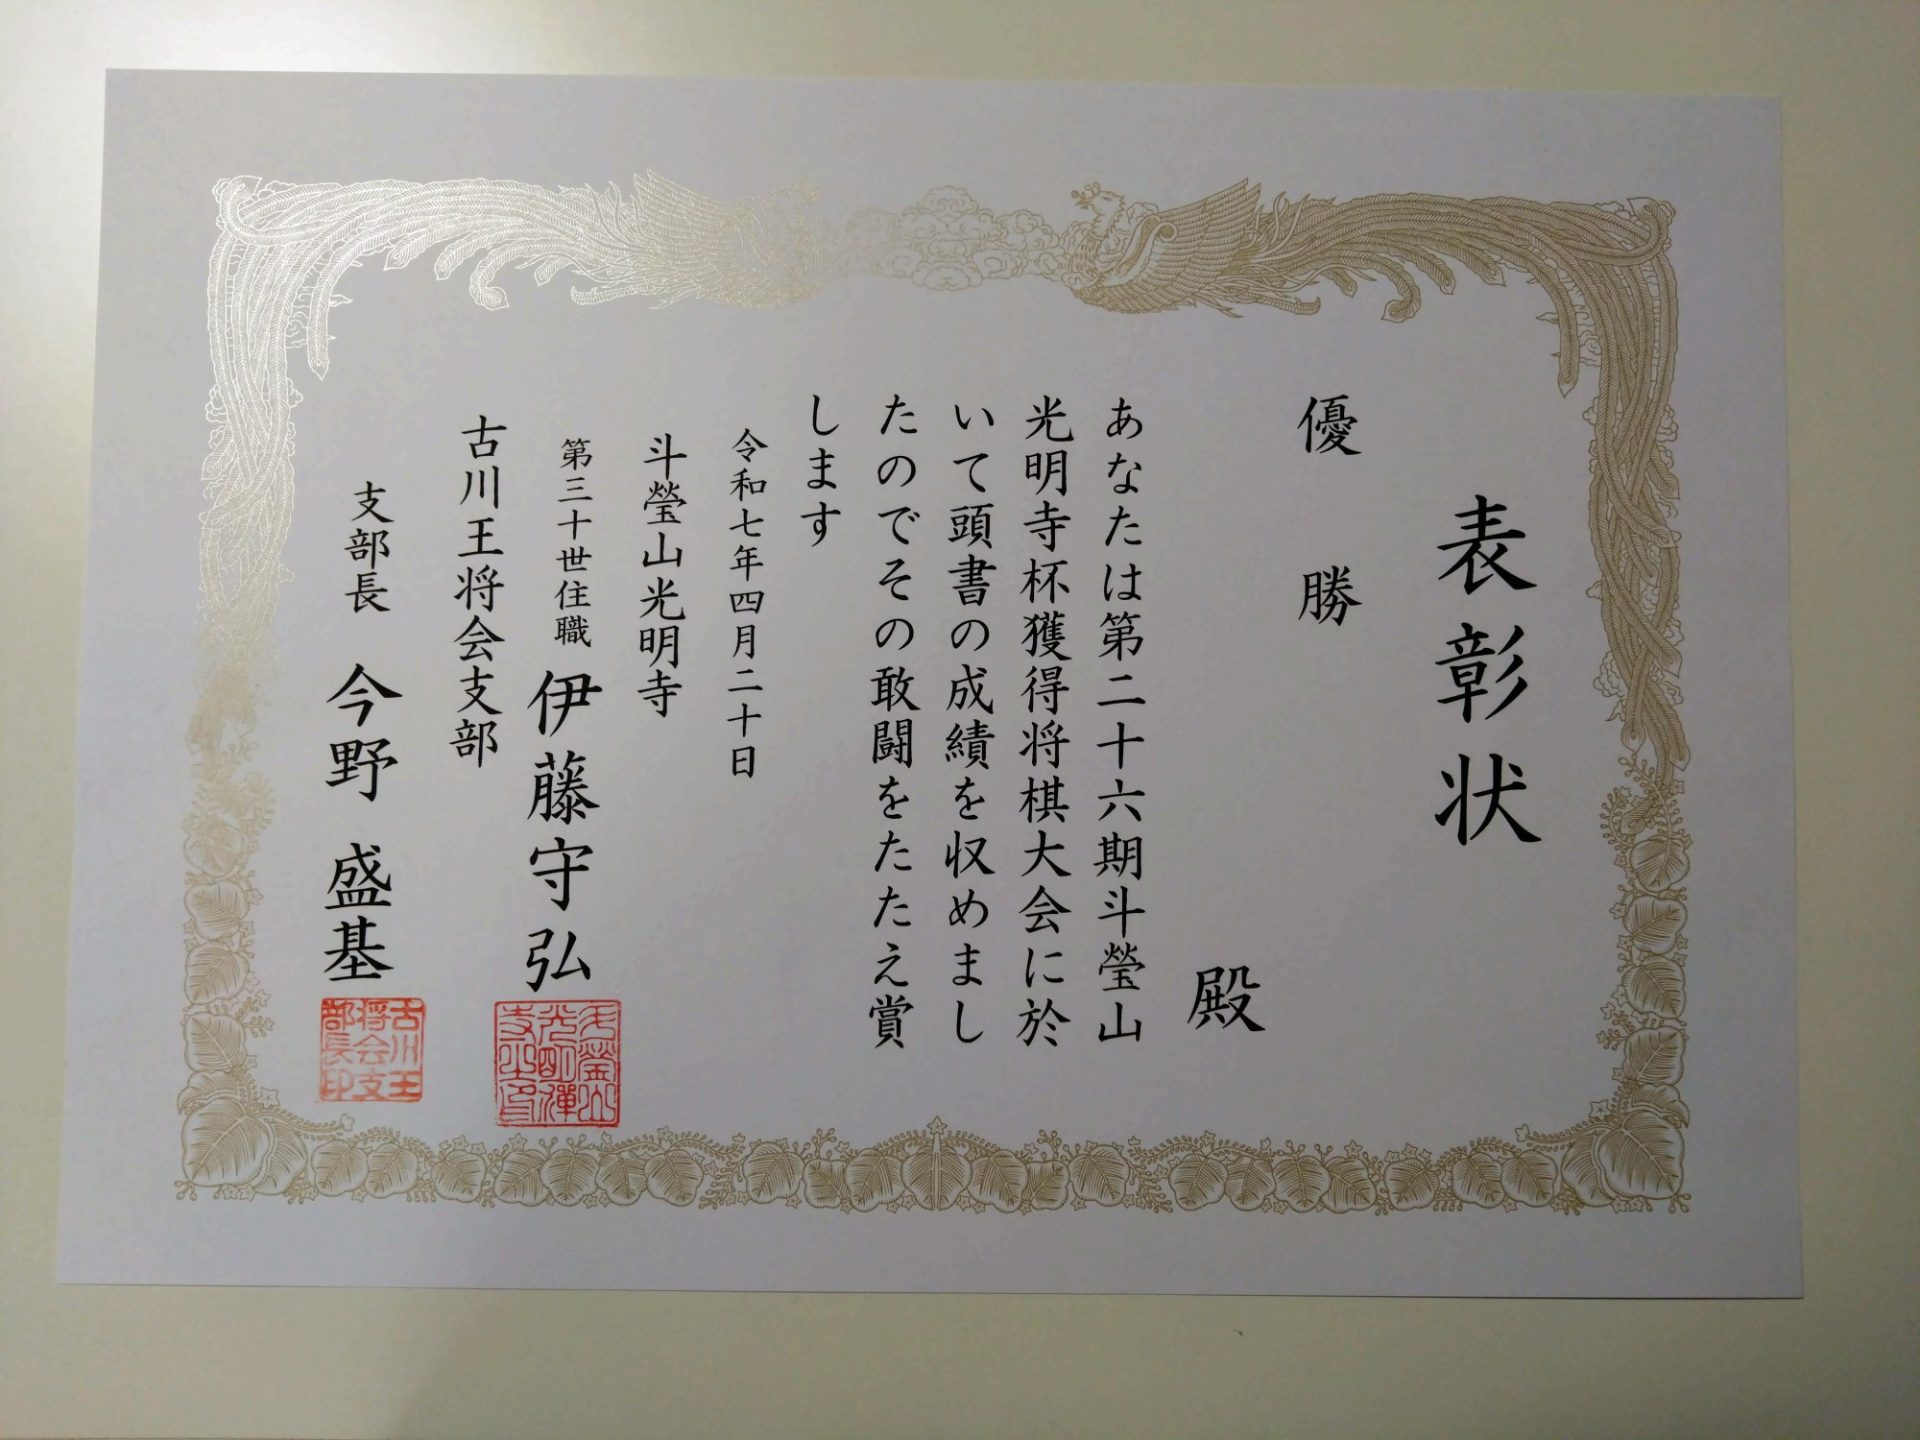 表彰状
優勝
殿
あなたは第二十六期斗瑩山
光明寺杯獲得将棋大会に於
いて頭書の成績を収めまし
たのでその敢闘をたたえ賞
します
令和七年四月二十日
斗瑩山光明寺
第三十世住職 伊藤守弘
古川王将会支部
支部長 今野 盛基
古川王
将会支
部長印